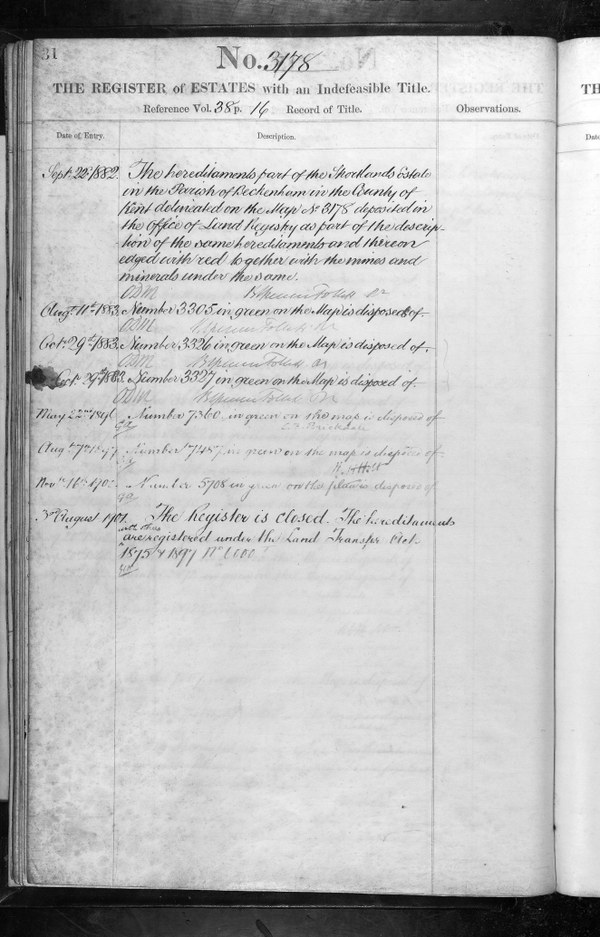 31
No. 3178
THE REGISTER of ESTATES with an Indefeasible Title.
Reference Vol. 38 p. 16 Record of Title.
Observations.
Date of Entry.
Description.
Sept. 22nd 1882. The hereditaments part of the Shortlands Estate
in the Parish of Beckenham in the County of
Kent delineated on the Map No 3178 deposited in
the office of Land Registry as part of the descrip-
tion of the same hereditaments and thereon
edged with red together with the mines and
minerals under the same.
Augt. 11th 1883. Number 3305 in green on the Map is disposed of.
Octr. 29th 1883. Number 3326 in green on the Map is disposed of.
Octr. 29th 1883. Number 3327 in green on the Map is disposed of.
May 22nd Number 7360 in green on the map is disposed of
Augt. 7th in green on the map is disposed of
Novr. Number 5708 in green on the is disposed of
August 1901. The Register is closed. The hereditaments
are registered under the Land Transfer Act
1875 & 1897 No
TH
Date